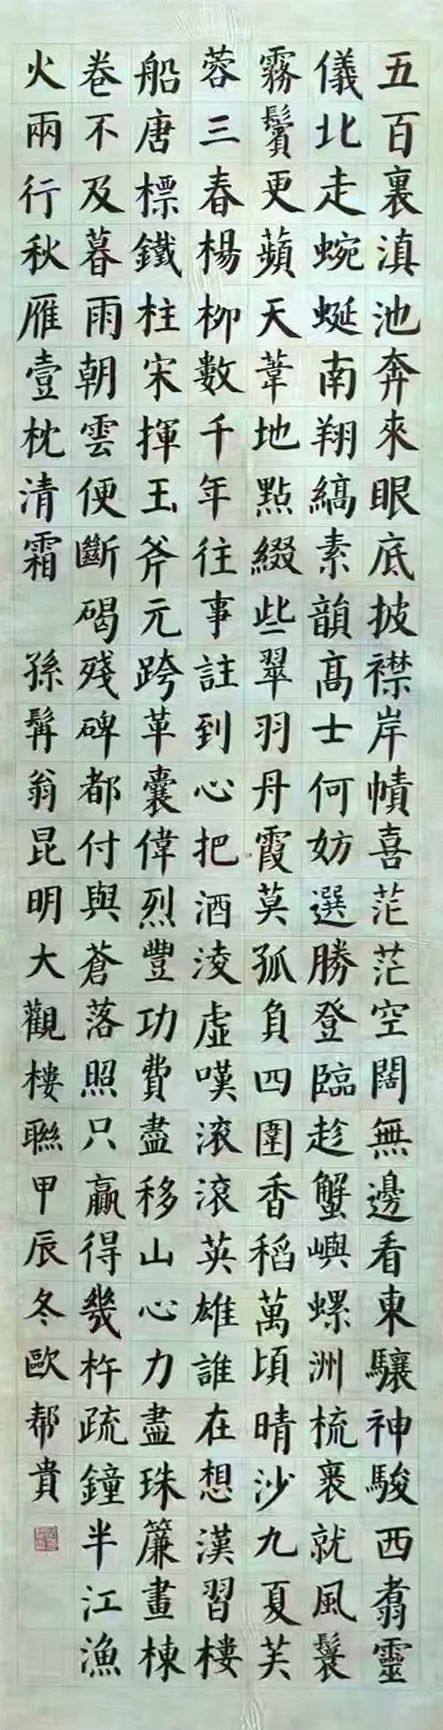 五百裏滇池奔來眼底披襟岸幘喜茫茫空闊無邊看東驤神駿西翥靈
儀北走蜿蜒南翔縞素韻髙士何妨選勝登臨趁蟹嶼螺洲梳裹就風鬟
霧鬢更蘋天葦地點綴些翠羽丹霞莫孤負四圍香稻萬頃晴沙九夏芙
蓉三春楊柳數千年往事註到心把酒淩虛嘆滚滚英雄誰在想漢習樓
船唐標鐵柱宋揮玉斧元跨革囊偉烈豐功費盡移山心力盡珠簾畫棟
卷不及暮雨朝雲便斷碣殘碑都付與蒼落照只贏得幾杵疏鐘半江漁
火兩行秋雁壹枕清霜 孫髯翁昆明大觀樓聯甲辰冬歐帮貴